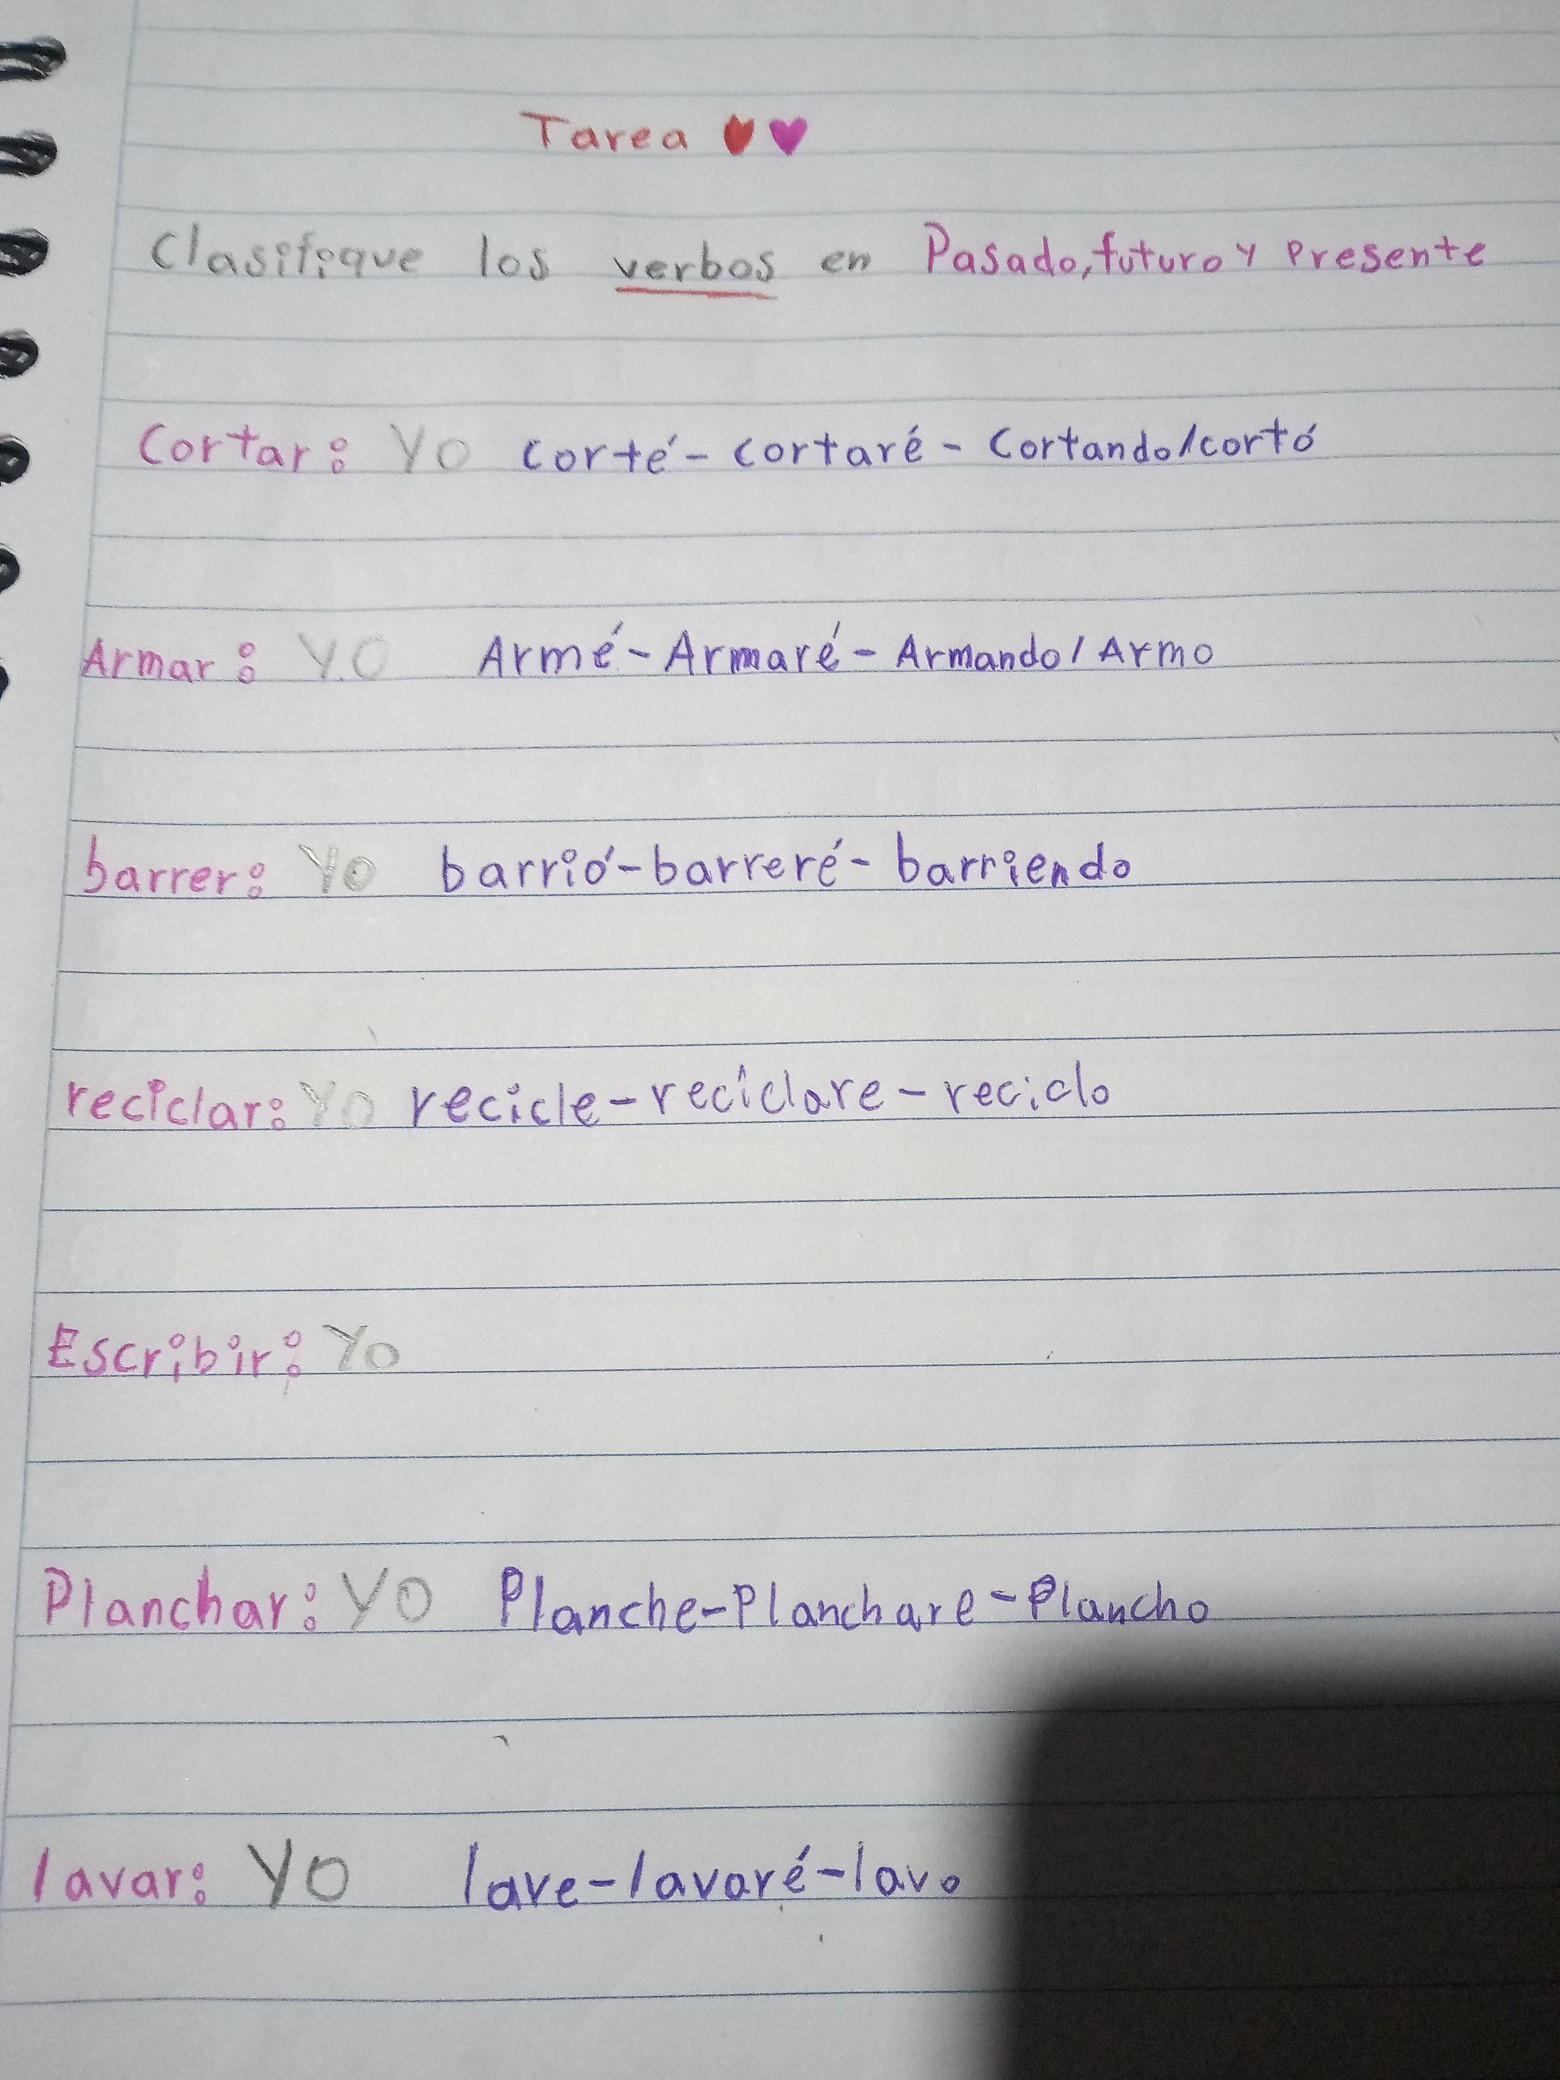 Tarea
Clasifique los verbos en Pasado, futuro y Presente
Cortar: Yo corté - cortaré - Cortando/cortó
Armar: Yo Armé - Armaré - Armando/Armo
barrer: Yo barrió - barreré - barriendo
reciclar: Yo recicle - reciclare - reciclo
Escribir: Yo
Planchar: Yo Planche - Planchare - Plancho
lavar: Yo lave - lavaré - lavo